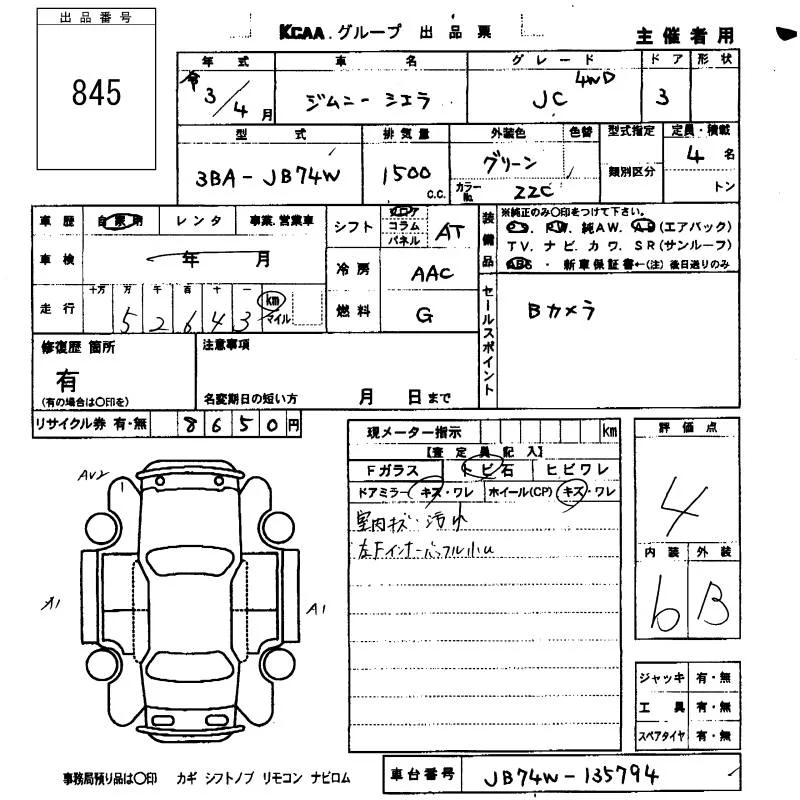 出品番号
845
KCAA.グループ 出品票
主催者用
年式 車名 グレード ドア 形状
令3/4月 ジムニーシエラ JC 4WD 3
型式 排気量 外装色 色替 型式指定 定員・積載
3BA-JB74W 1500 C.C. グリーン 類別区分 4名
カラーNo. ZZC トン
車歴 自家用 レンタ 事業.営業車
シフト フロア コラム パネル AT
装備品 ※純正のみ〇印をつけて下さい。
P.S. P.W. 純AW. A.B(エアバック)
TV. ナビ. カワ. SR(サンルーフ)
ABS・新車保証書←(注)後日送りのみ
車検 年 月
冷房 AAC
走行 十万 万 千 百 十 一 km マイル
52643
燃料 G
セールスポイント Bカメラ
修復歴 箇所
有
(有の場合は〇印を)
注意事項
名変期日の短い方 月 日まで
リサイクル券 有・無 8650円
現メーター指示 km
【査定員記入】
Fガラス トビ石 ヒビワレ
ドアミラー キズ・ワレ ホイール(CP) キズ・ワレ
室内キズ・汚れ
評価点
4
内装 外装
b B
AV2
A1 A1
ジャッキ 有・無
工具 有・無
スペアタイヤ 有・無
事務局預り品は〇印 カギ シフトノブ リモコン ナビロム
車台番号 JB74W-135794